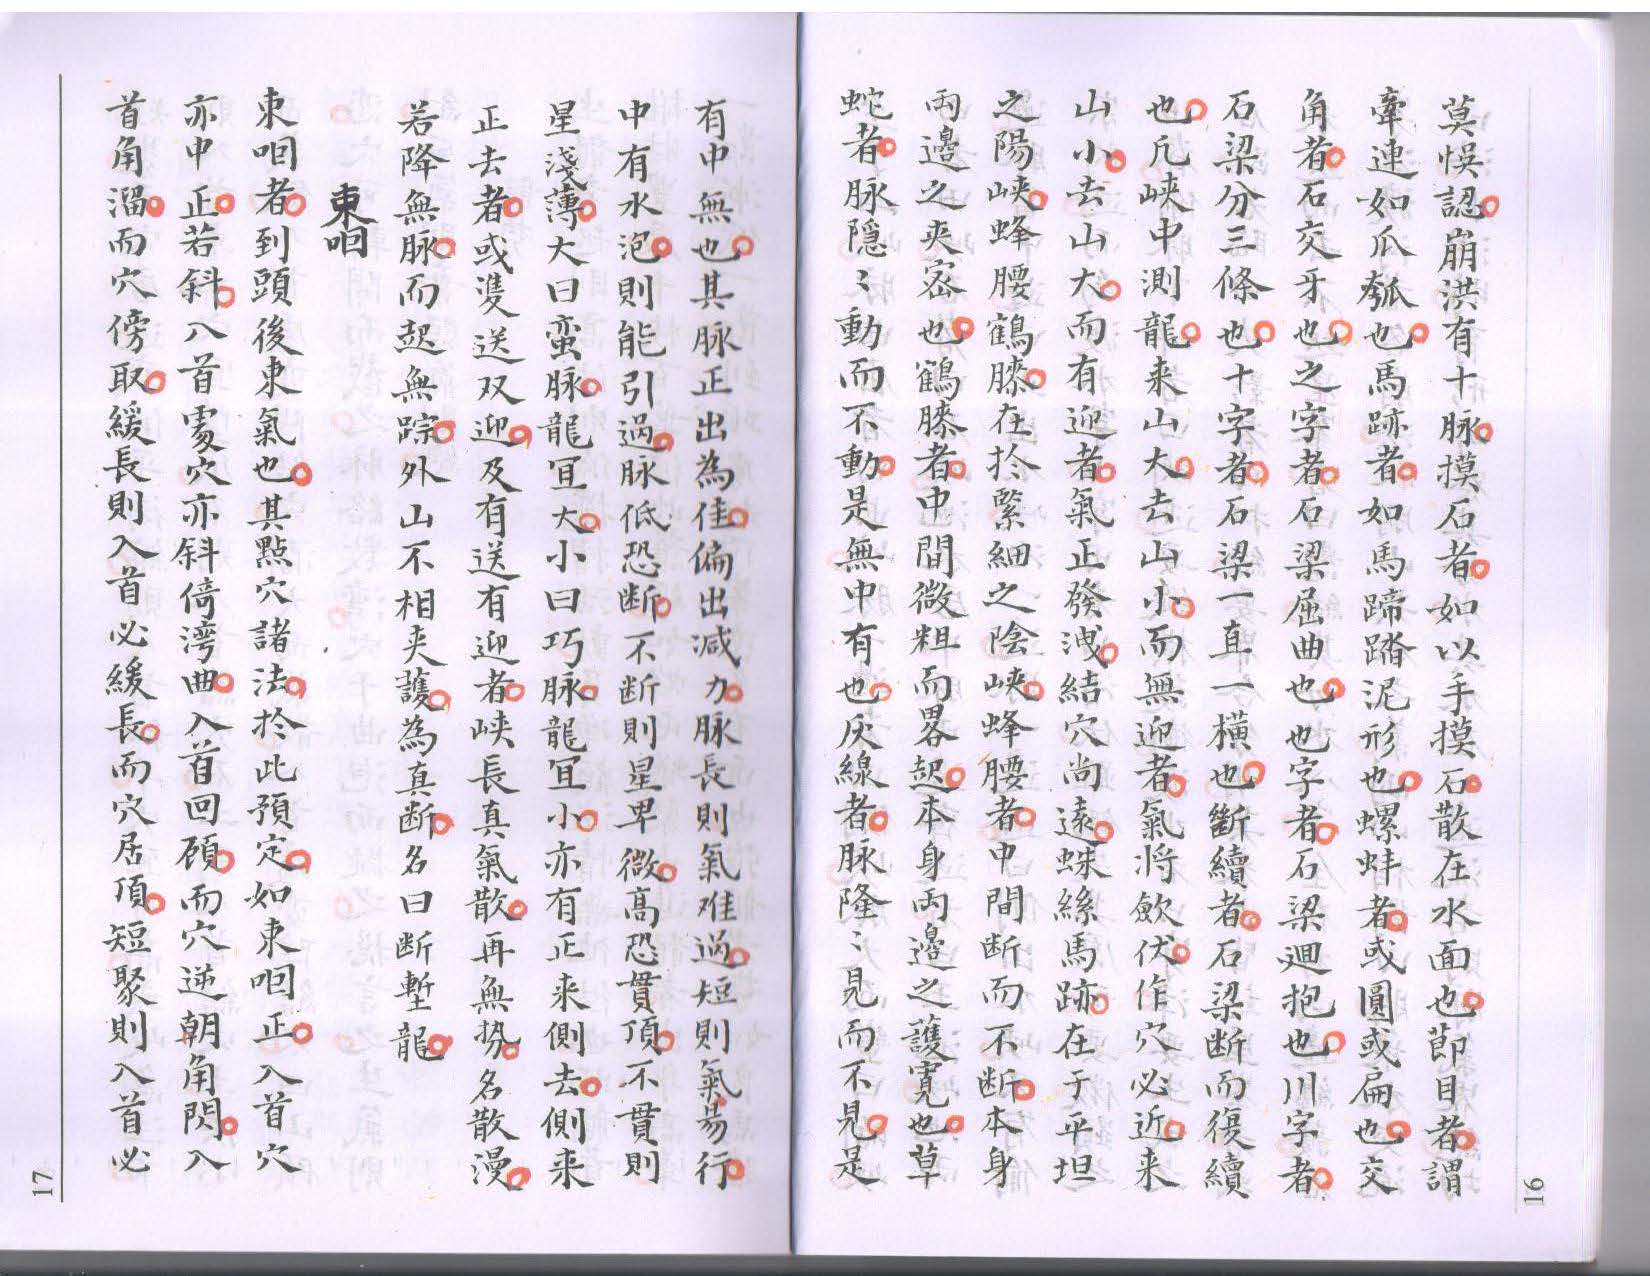 莫悞認崩洪有十脉摸石者如以手摸石散在水面也節目者謂
牽連如瓜瓠也馬跡者如馬蹄踏泥形也螺蚌者或圓或扁也交
角者石交牙也之字者石梁屈曲也也字者石梁迴抱也川字者
石梁分三條也十字者石梁一直一橫也斷續者石梁断而復續
也凢峽中測龍来山大去山小而無迎者氣将歛伏作穴必近来
山小去山大而有迎者氣正發洩結穴尚遠蛛絲馬跡在于平坦
之陽峽蜂腰鶴膝在扵緊細之陰峽蜂腰者中間断而不断本身
両邊之夾宻也鶴膝者中間微粗而畧起本身両邊之護寛也草
蛇者脉隠〻動而不動是無中有也灰線者脉隆〻見而不見是
16
有中無也其脉正出為佳偏出减力脉長則氣难過短則氣易行
中有水泡則能引過脉低恐断不断則星卑微高恐貫頂不貫則
星淺薄大曰蛮脉龍冝大小曰巧脉龍冝小亦有正来側去側来
正去者或雙送双迎及有送有迎者峽長真氣散再無势名散漫
若降無脉而起無踪外山不相夹護為真断名曰断塹龍
束咽
束咽者到頭後束氣也其點穴諸法扵此預定如束咽正入首穴
亦中正若斜入首䖏穴亦斜倚湾曲入首回顧而穴逆朝角閃入
首角溜而穴傍取緩長則入首必緩長而穴居頂短聚則入首必
17